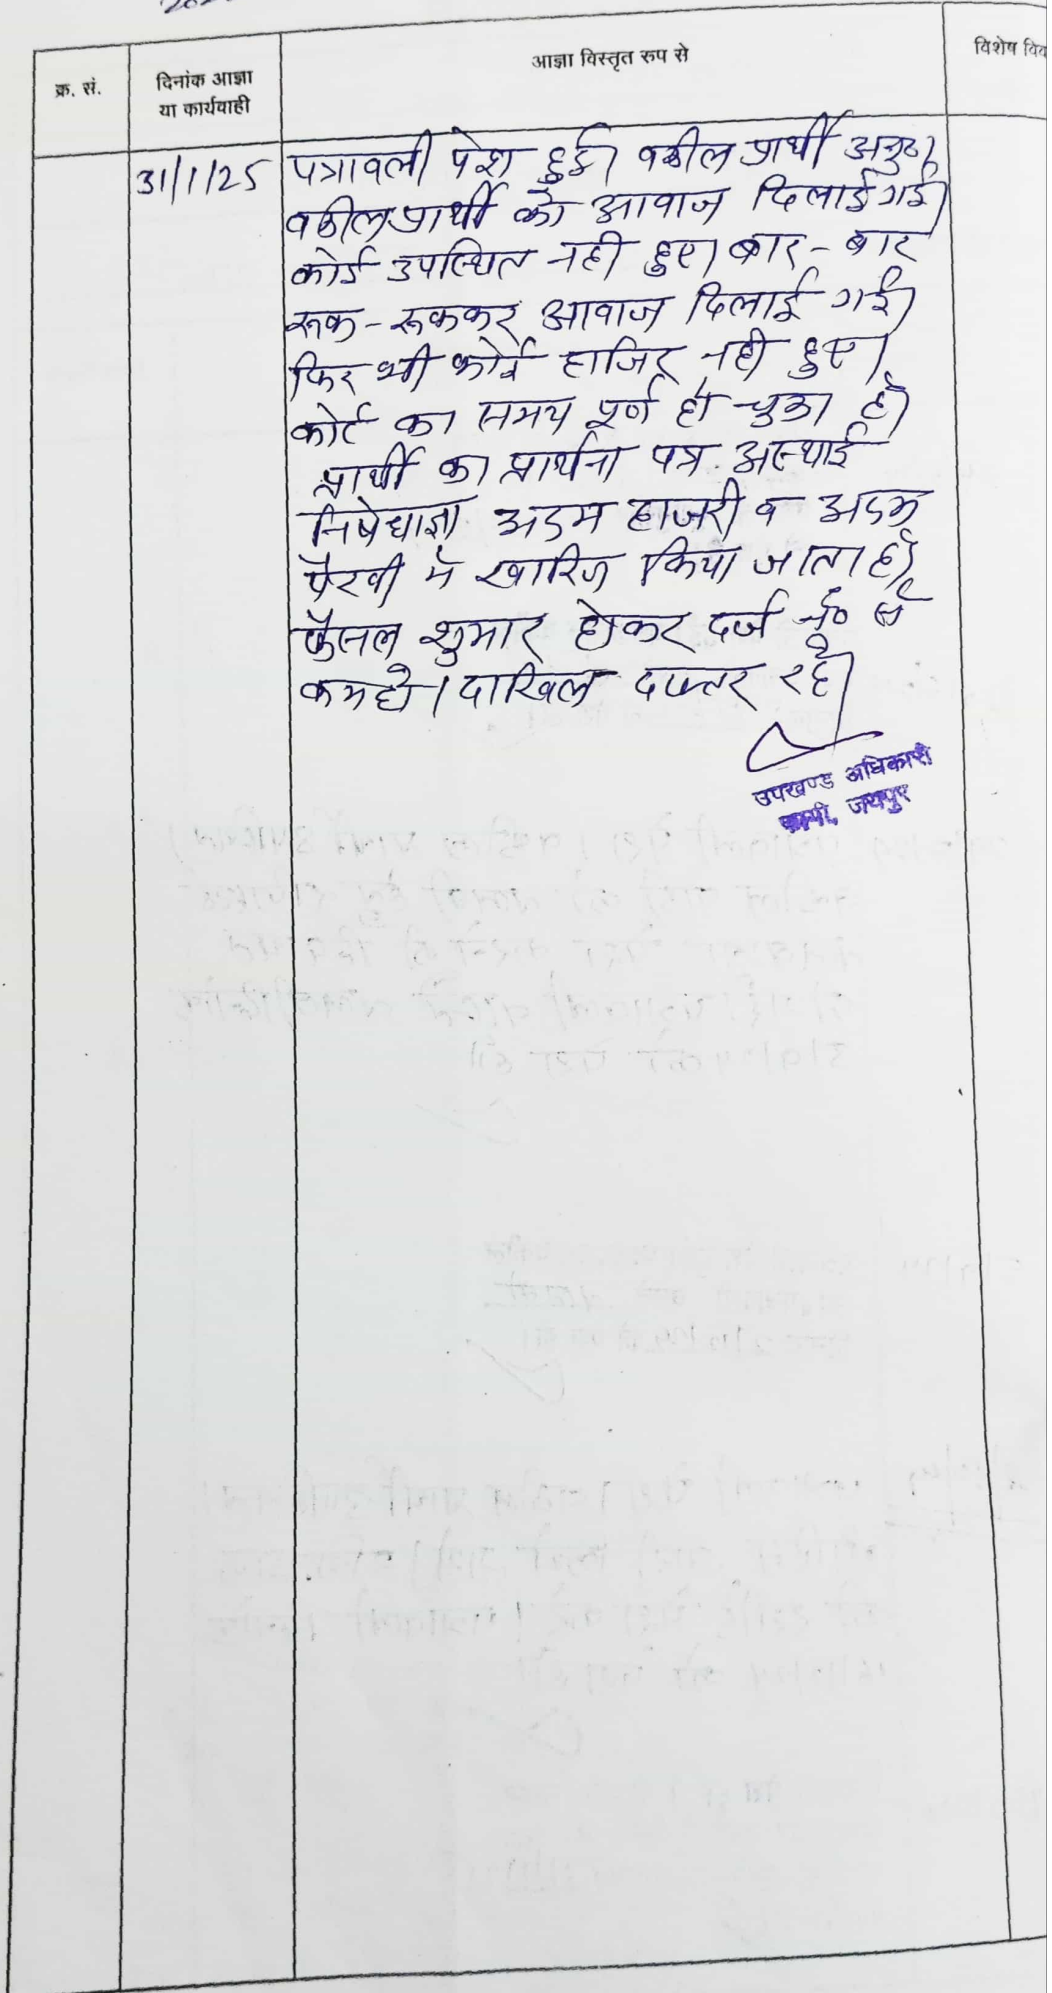 क्र. सं.
दिनांक आज्ञा
या कार्यवाही
आज्ञा विस्तृत रुप से
विशेष विव
31/1/25
पत्रावली पेश हुई। वकील प्रार्थी अनु०,
वकील प्रार्थी को आवाज दिलाई गई।
कोई उपस्थित नही हुए। बार-बार
रूक-रूककर आवाज दिलाई गई।
फिर भी कोई हाजिर नही हुए।
कोर्ट का समय पूर्ण हो चुका है।
प्रार्थी का प्रार्थना पत्र अस्थाई
निषेधाज्ञा अदम हाजरी व अदम
पैरवी में खारिज किया जाता है।
फैसल शुमार होकर दर्ज नं० से
कम हो। दाखिल दफ्तर रहे।
उपखण्ड अधिकारी
फागी, जयपुर